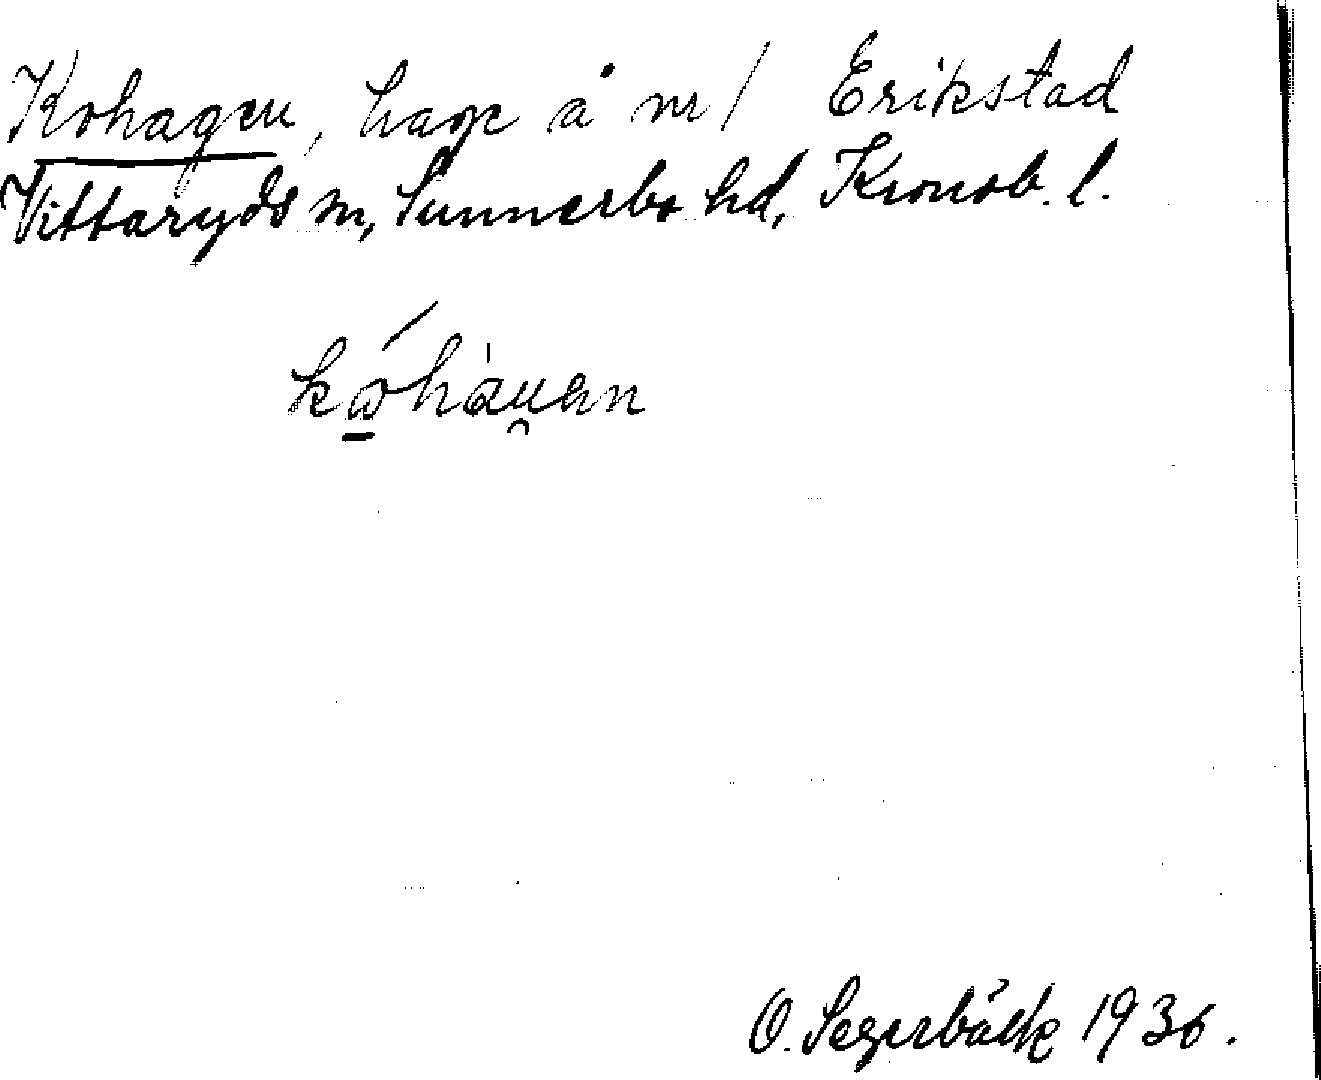 Kohagen, hage å nr 1 Erikstad
Vittaryds sn, Sunnerbo hd, Kronob. l.
O. Segerbäck 1936.